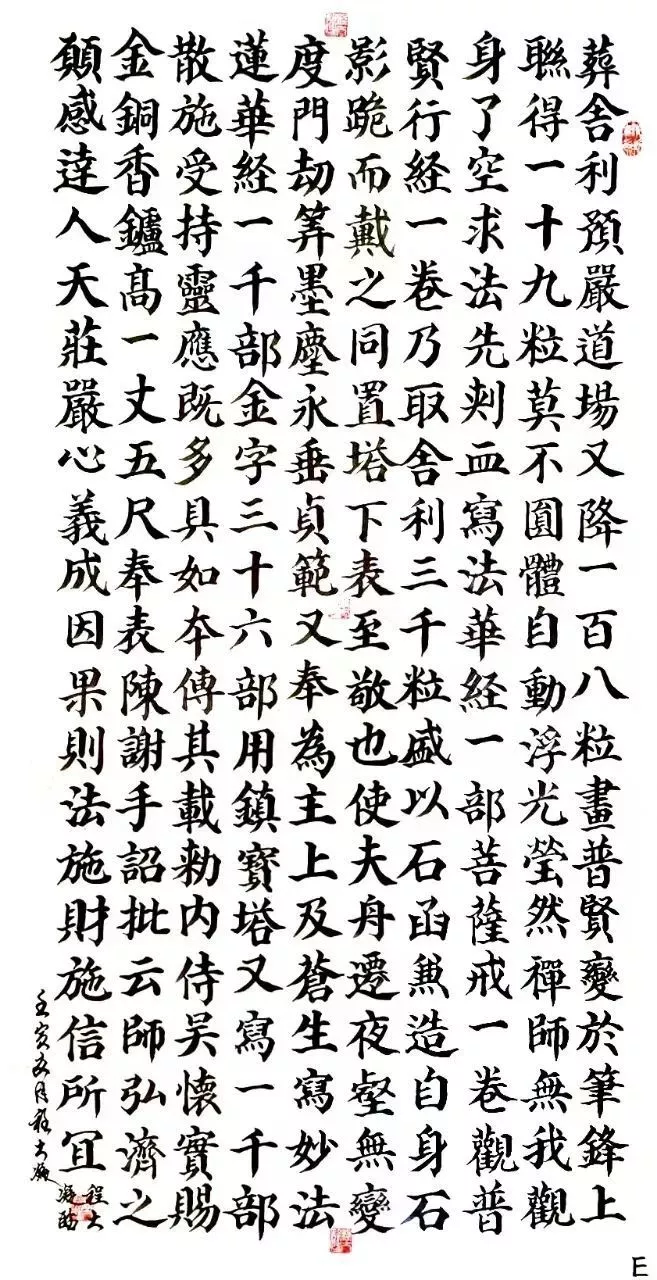 葬舍利預嚴道場又降一百八粒畫普賢變於筆鋒上
聯得一十九粒莫不圓體自動浮光瑩然禪師無我觀
身了空求法先刺血寫法華経一部菩薩戒一卷觀普
賢行経一卷乃取舍利三千粒盛以石函兼造自身石
影跪而戴之同置塔下表至敬也使夫舟遷夜壑無變
度門劫筭墨塵永垂貞範又奉為主上及蒼生寫妙法
蓮華経一千部金字三十六部用鎮寶塔又寫一千部
散施受持靈應既多具如夲傳其載勑内侍吳懷實賜
金銅香鑪髙一丈五尺奉表陳謝手詔批云師弘濟之
願感達人天莊嚴心義成因果則法施財施信所冝
壬寅 月程大
程大
E